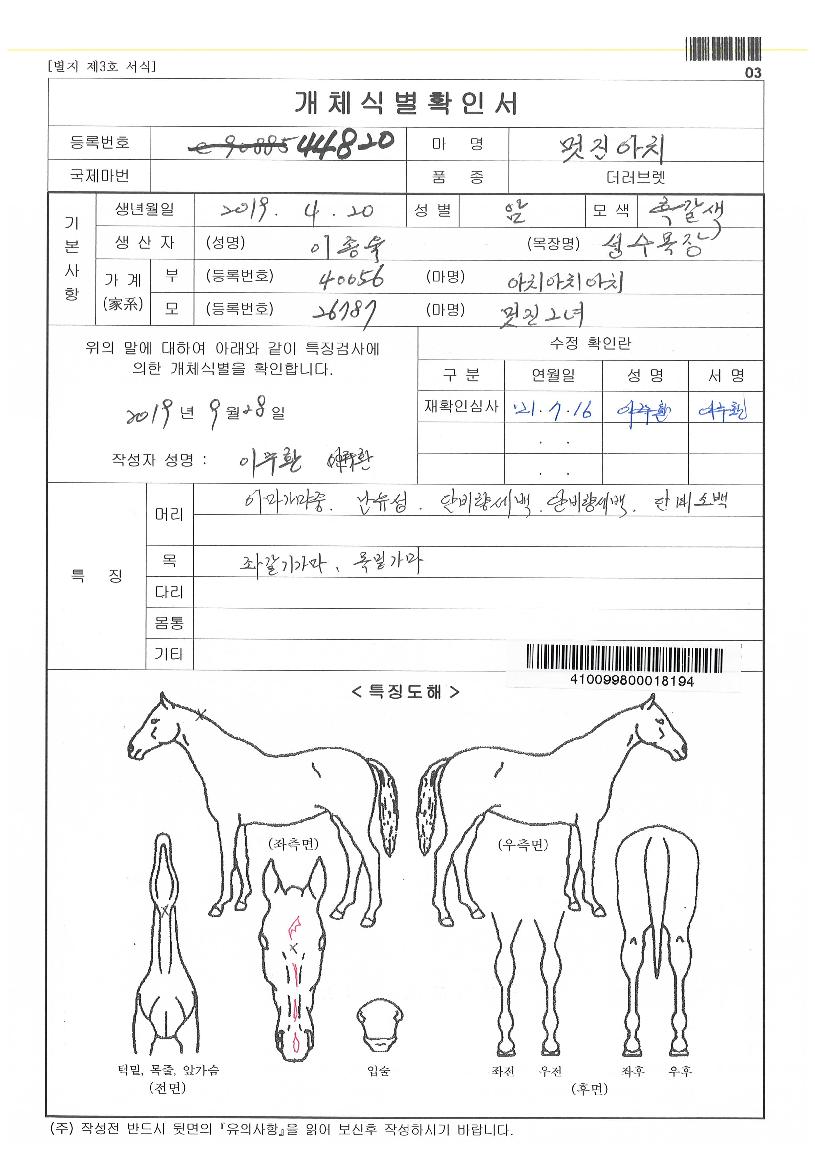 03
[별지 제3호 서식]
개체식별확인서
등록번호 e90885 44820 마 명 멋진아치
국제마번 품 종 더러브렛
기본사항
생년월일 2019. 4. 20 성 별 암 모 색 흑갈색
생 산 자 (성명) 이종욱 (목장명) 성수목장
가 계 (家系) 부 (등록번호) 40056 (마명) 아치아치아치
모 (등록번호) 26787 (마명) 멋진그녀
위의 말에 대하여 아래와 같이 특징검사에
의한 개체식별을 확인합니다.
2019 년 9 월 28 일
작성자 성명 : 이주환
수정 확인란
구 분 연월일 성 명 서 명
재확인심사 '21. 7. 16 이주환 이주환
. .
. .
특 징
머리 이마가마중. 난유성. 단비량세백. 단비량세백. 단비소백
목 좌갈기가마, 목밑가마
다리
몸통
기타
410099800018194
< 특징도해 >
(좌측면) (우측면)
턱밑, 목줄, 앞가슴 입술 좌전 우전 좌후 우후
(전면) (후면)
(주) 작성전 반드시 뒷면의 『유의사항』을 읽어 보신후 작성하시기 바랍니다.